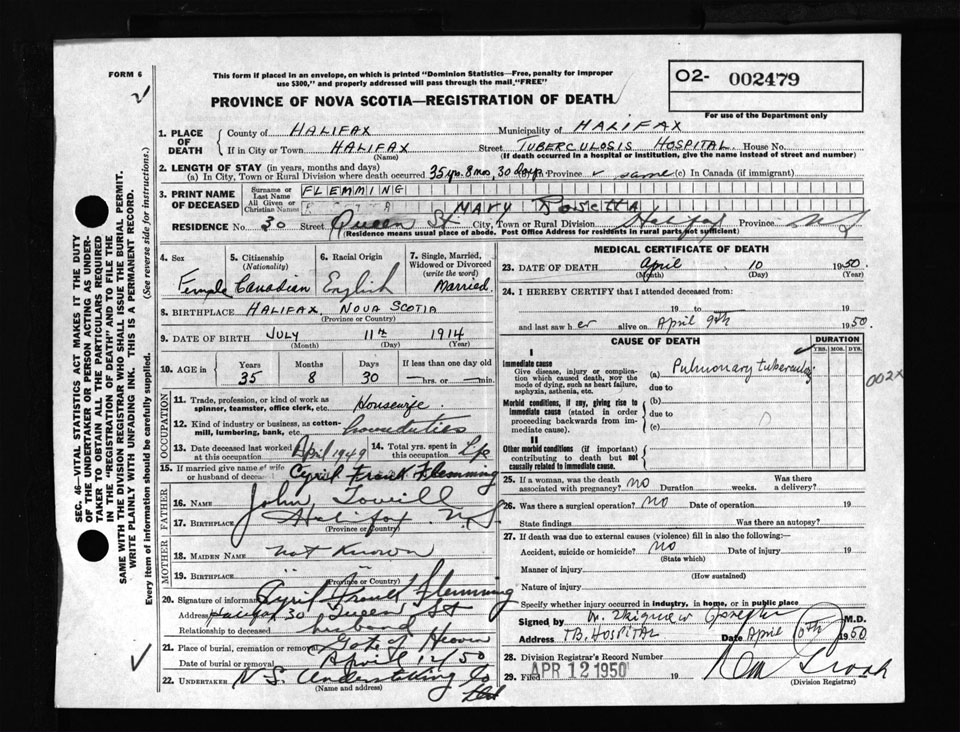 FORM 6
This form if placed in an envelope, on which is printed "Dominion Statistics—Free, penalty for improper
use $300," and properly addressed will pass through the mail "FREE"
O2- 002479
For use of the Department only
PROVINCE OF NOVA SCOTIA—REGISTRATION OF DEATH
1. PLACE OF DEATH County of HALIFAX Municipality of HALIFAX
If in City or Town HALIFAX (Name) Street TUBERCULOSIS HOSPITAL House No.
(If death occurred in a hospital or institution, give the name instead of street and number)
2. LENGTH OF STAY (in years, months and days)
(a) In City, Town or Rural Division where death occurred 35 yrs. 8 mos, 30 days (b) Province same (c) In Canada (if immigrant)
3. PRINT NAME OF DECEASED Surname or Last Name FLEMMING
All Given or Christian Names MARY Rosetta
RESIDENCE No. 30 Street Queen St City, Town or Rural Division Halifax Province N S
(Residence means usual place of abode. Post Office Address for residents in rural parts not sufficient)
4. Sex Female
5. Citizenship (Nationality) Canadian
6. Racial Origin English
7. Single, Married, Widowed or Divorced (write the word) Married
8. BIRTHPLACE HALIFAX, NOVA SCOTIA
(Province or Country)
9. DATE OF BIRTH JULY 11th 1914
(Month) (Day) (Year)
10. AGE in Years 35 Months 8 Days 30 If less than one day old —hrs. or —min.
OCCUPATION
11. Trade, profession, or kind of work as spinner, teamster, office clerk, etc. Housewife
12. Kind of industry or business, as cotton-mill, lumbering, bank, etc. home duties
13. Date deceased last worked at this occupation April 1949
14. Total yrs. spent in this occupation Life
15. If married give name of wife or husband of deceased Cyril Frank Flemming
FATHER
16. Name John
17. Birthplace Halifax N.S.
(Province or Country)
MOTHER
18. Maiden Name not Known
19. Birthplace " "
(Province or Country)
20. Signature of informant Cyril Frank Flemming
Address Halifax 30 Queen St
Relationship to deceased husband
21. Place of burial, cremation or removal Gate of Heaven
Date of burial or removal April 12/50
22. UNDERTAKER N S. Undertaking Co Ltd
(Name and address)
MEDICAL CERTIFICATE OF DEATH
23. DATE OF DEATH April 10 1950
(Month) (Day) (Year)
24. I HEREBY CERTIFY that I attended deceased from:
19 to 19
and last saw h er alive on April 9th 1950.
CAUSE OF DEATH
DURATION
YRS. MOS. DYS.
I
Immediate cause
Give disease, injury or complication which caused death, NOT the mode of dying, such as heart failure, asphyxia, asthenia, etc.
(a) Pulmonary tuberculosis
due to
Morbid conditions, if any, giving rise to immediate cause (stated in order proceeding backwards from immediate cause).
(b)
due to
(c)
002X
II
Other morbid conditions (if important) contributing to death but not causally related to immediate cause.
25. If a woman, was the death associated with pregnancy? NO Duration weeks. Was there a delivery?
26. Was there a surgical operation? NO Date of operation 19
State findings Was there an autopsy?
27. If death was due to external causes (violence) fill in also the following:—
Accident, suicide or homicide? NO Date of injury 19
(State which)
Manner of injury
(How sustained)
Nature of injury
Specify whether injury occurred in industry, in home, or in public place
Signed by M.D.
Address T.B. HOSPITAL Date April 10th 1950
28. Division Registrar's Record Number
29. Filed APR 12 1950 19
(Division Registrar)
SEC. 46—VITAL STATISTICS ACT MAKES IT THE DUTY
OF THE UNDERTAKER OR PERSON ACTING AS UNDER-
TAKER TO OBTAIN ALL THE PARTICULARS REQUIRED
IN THE "REGISTRATION OF DEATH" AND TO FILE THE
SAME WITH THE DIVISION REGISTRAR WHO SHALL ISSUE THE BURIAL PERMIT.
WRITE PLAINLY WITH UNFADING INK. THIS IS A PERMANENT RECORD.
Every item of information should be carefully supplied. (See reverse side for instructions.)